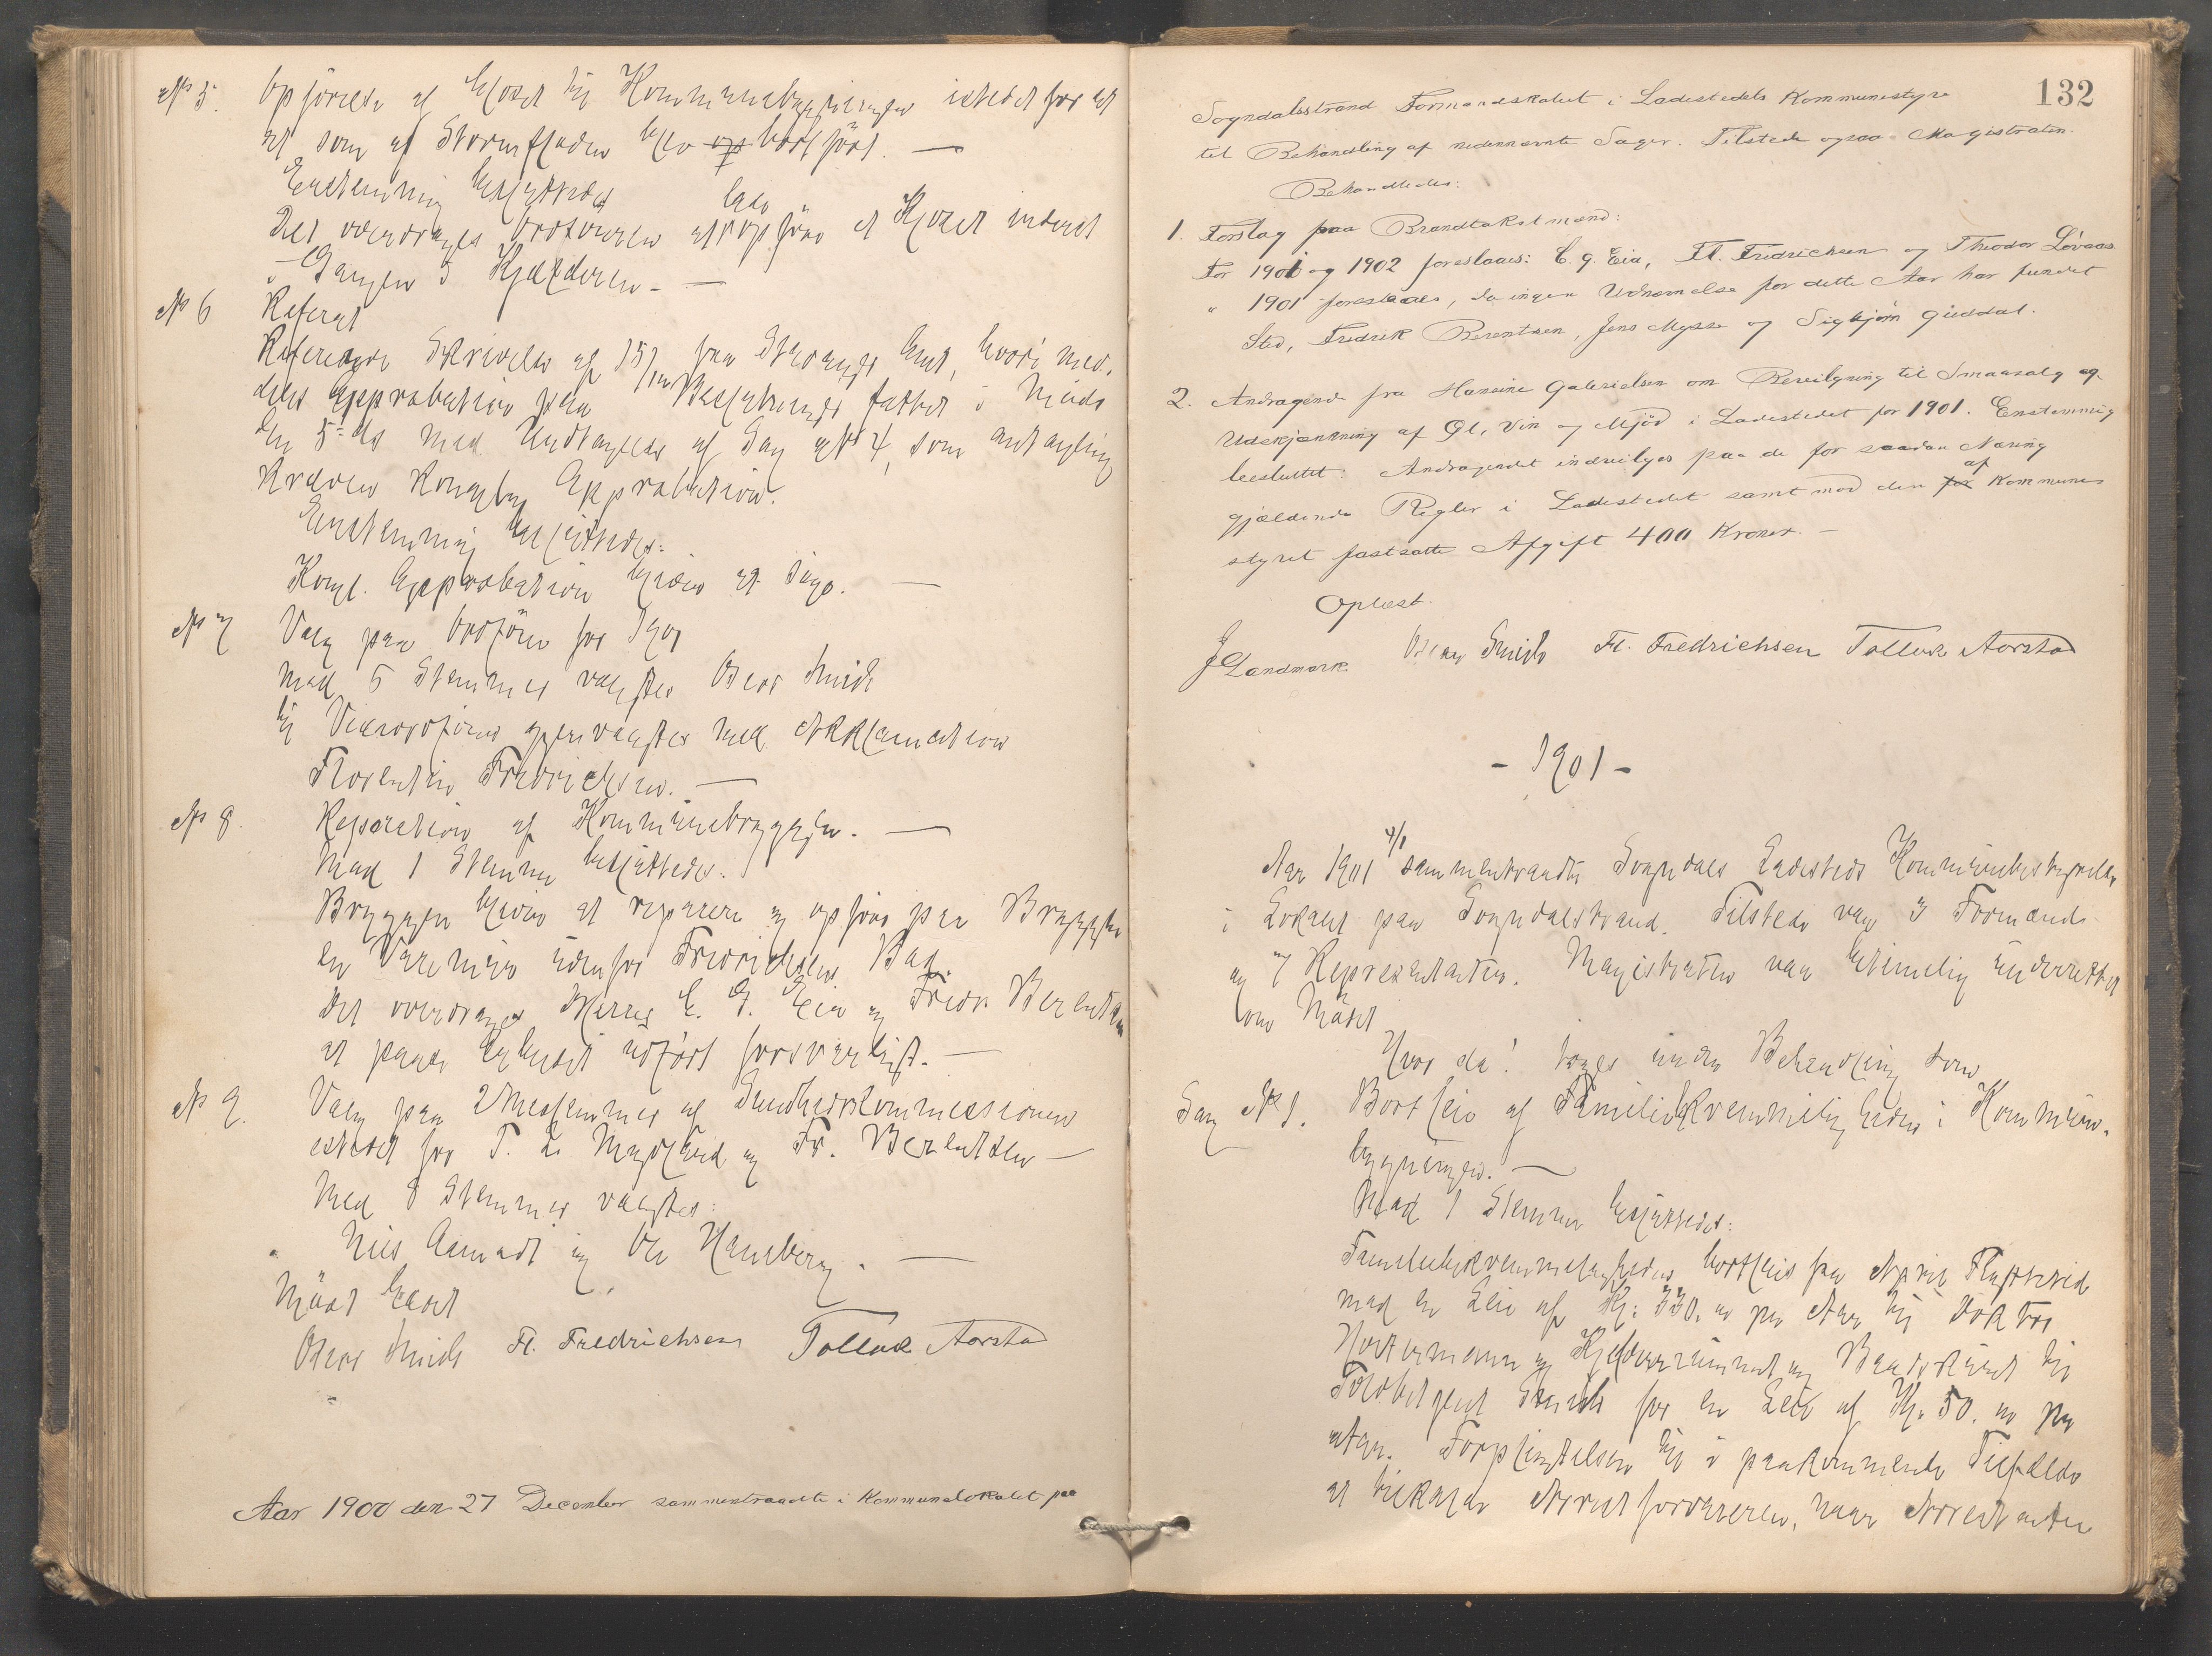 No 5. Opførelse af Closet til Kommunebygningen istedet for et
et som af Stormfloden blev bortført. —
Enstemmig besluttedes
lade
Det overdrages Ordføreren at opføre et Closet inderst
i Gangen i Kjælderen. —
No 6 Referat
Refererede Skrivelse af 15/ fra Stavanger Amt, hvori med-
deles Approbation paa Beslutninger fattet i Møde
den 5- ds med Undtagelse af Sag No 4, som antagelig
kræver Kongelig Approbation.
Enstemmig besluttedes:
Kongl. Approbation bliver at søge. —
No 7 Valg paa Ordfører for 1901
Med 5 Stemmer valgtes Oscar Smith
til Viceordfører gjenvalgtes med Akklamation
Florentin Fredrichsen. —
No 8. Reparation af Kommunebryggen. —
Med 1 Stemme besluttedes:
Bryggen bliver at reparere og opføre paa Bryggen
en udenfor Fredrichsens
Det overdrages Herrer C. G. Eia og Fredr Berentsen
at paase Arbeidet udført forsvarligt. —
No 9. Valg paa 2 Medlemmer af Sundhedskommissionen
istedet for T. L. Mydland og Fr. Berentsen —
Med 8 Stemmer valgtes:
Nils Aamodt og Ole Hamberg. —
Mødet hævet
Oscar Smith Fl. Fredrichsen Tollak Aarstad
Aar 1900 den 27 December sammentraadte i Kommunelokalet paa
132
Sogndalsstrand Formandskabet i Ladestedets Kommunestyre
til Behandling af nedennævnte Sager. Tilstede ogsaa Magistraten.
Behandledes:
1. Forslag paa Brandtakstmænd:
For 1901 og 1902 foreslaaes: C. G. Eia, Fl. Fredrichsen og Theodor Løvaas
" 1901 foreslaaes, da ingen Udnævnelse for dette Aar har fundet
Sted, Fredrik Berentsen, Jens Mysse og Sigbjørn Guddal.
2. Andragende fra Hansine Gabrielsen om Bevilgning til Smaasalg og
Udskjænkning af Øl, Vin og Mjød i Ladestedet for 1901. Enstemmig
besluttet: Andragendet indvilges paa de for saadan Næring
gjældende Regler i Ladestedet samt mod den for af Kommune-
styret fastsatte Afgift 400 Kroner. —
Oplæst.
J Landmark Oscar Smith Fl. Fredrichsen Tollak Aarstad
- 1901 -
Aar 1901 4/1 sammentraadte Sogndals Ladesteds Kommunebestyrelse
i Lokalet paa Sogndalstrand. Tilstede var 3 Formænd
og 7 Repræsentanter. Magistraten var betimelig underrettet
om Mødet
Hvor da! toges under Behandling som
Sag No 1. Bortleie af Familiebekvemmeligheden i Kommune-
bygningen. —
Med 1 Stemme besluttedes:
Familiebekvemmeligheden bortleies fra April Flyttetid
med en Leie af Kr. 330. oo pr Aar til Doktor
og Kjælderrummet og til
Toldbetjent Smith for en Leie af Kr. 50. oo pr
Aar. Forpligtelsen til i paakommende Tilfælde
at Arrestforvareren, naar Arrestanter